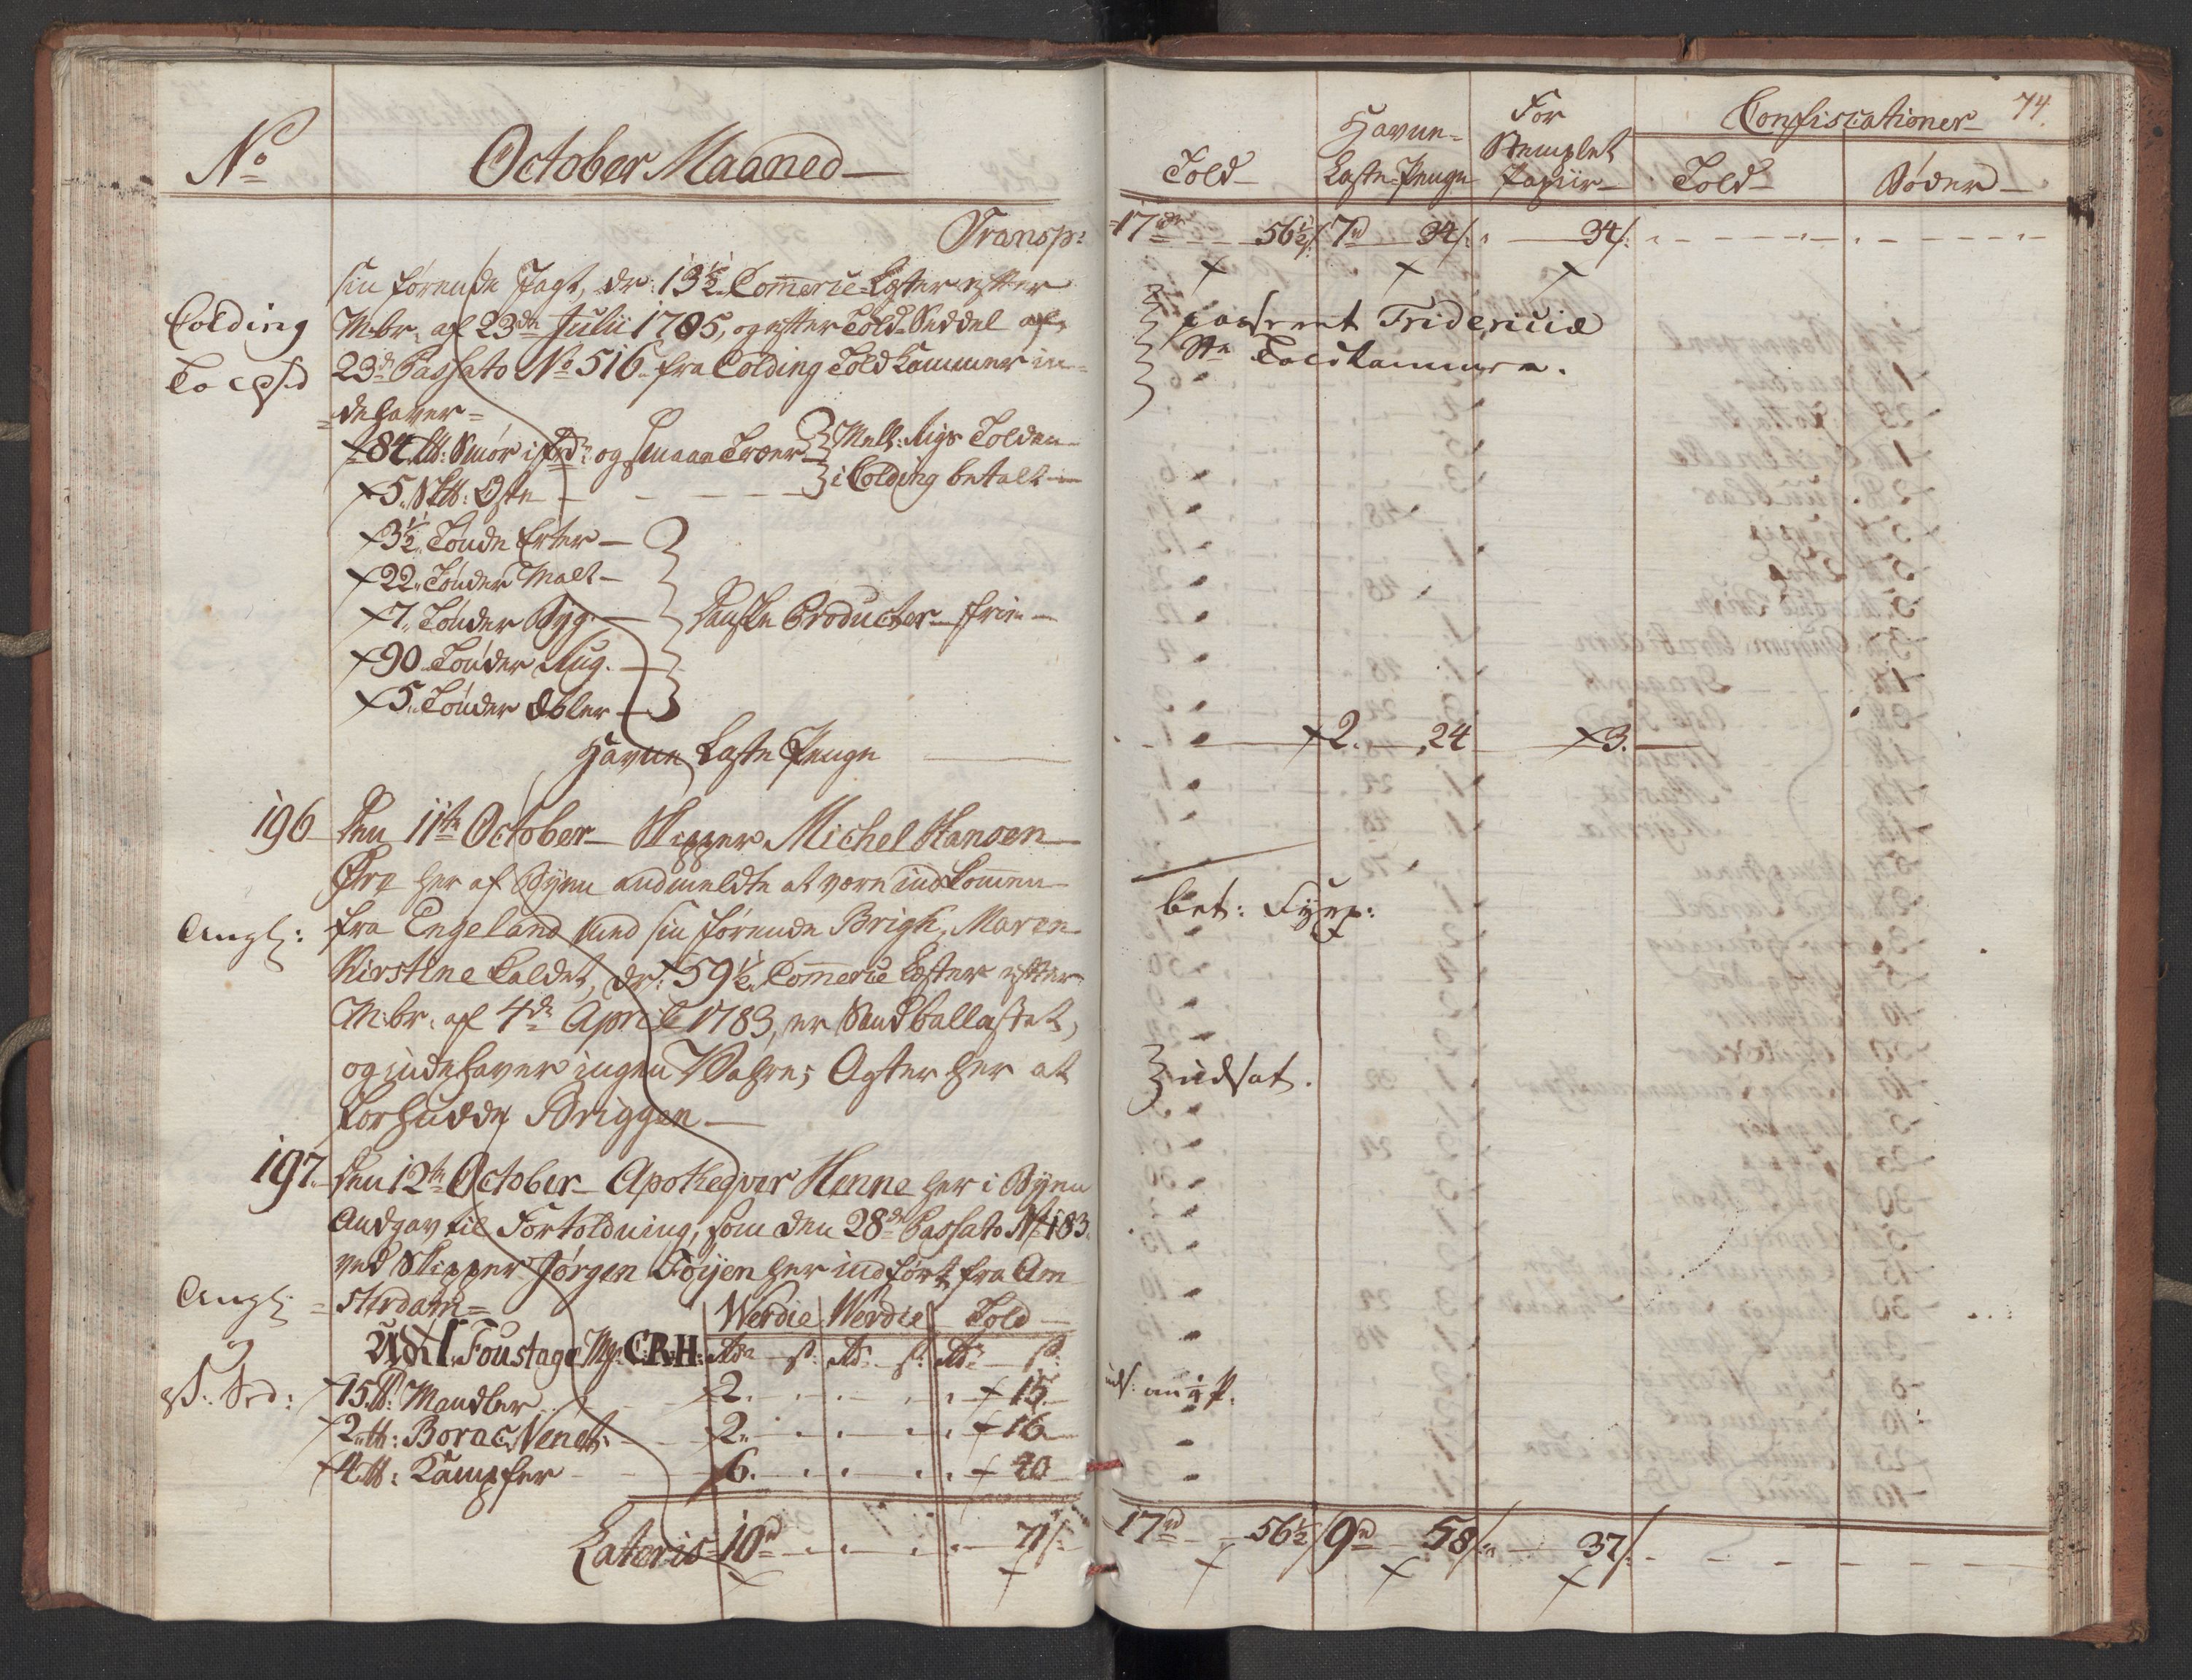 No
October Maaned
Transp:
sin førende Jagt, dr: 13½ Com̄erce Læster efter
Colding
M:br: af 23de Julii 1785, og efter Told-Seddel af
23de Passato No 516 fra Colding Told Kammer in-
=dehaver=
84 ℔: Smør i og smaae Træer } Mell: Rigs Tolden
5 S℔: Oste } i Colding betalt
3½ Tønde Erter
22 Tønder Malt
7 Tønder Byg } Danske Producter frie
90 Tønder Rug
5 Tønder Æbler
Havne Laste Penge
196 Den 11te October Skipper Michel Hansen
her af Byen anmeldte at være indkommen
Angl: fra Engeland med sin førende Brigh, Maren
Kirstine kaldet, dr: 59½ Com̄erce Læster efter
M:br: af 4de April 1783, er Sandballastet,
og indehaver ingen Wahre; Agter her at
forhudde Briggen
197 Den 12te October Apotheqver Henne her i Byen
Angav til Fortoldning, som den 28de Passato No 183
ved Skipper Jørgen Föyen her indført fra Am
Angl: =sterdam=
Werdie Werdie Told
Ud 1 Foustage Mp: C:R:H: Rdr s: Rdr s: Rdr s:
15 ℔: Mandler 2. 15
2 ℔: Borac: Venet: 2. 16
4 ℔: Kampfer 6. 40
Lateris 10rd 71/:
74.
Told
Havne-
Laste-Penge
For
Stemplet
Papiir
Confiscationer
Told
Bøder
17rd 56½/: 7rd 34/: 34/:
passeret Fridericiæ
Toldkammer.
2. 24 3.
bet:
udsat.
17rd 56½/ 9rd 58/: 37/: